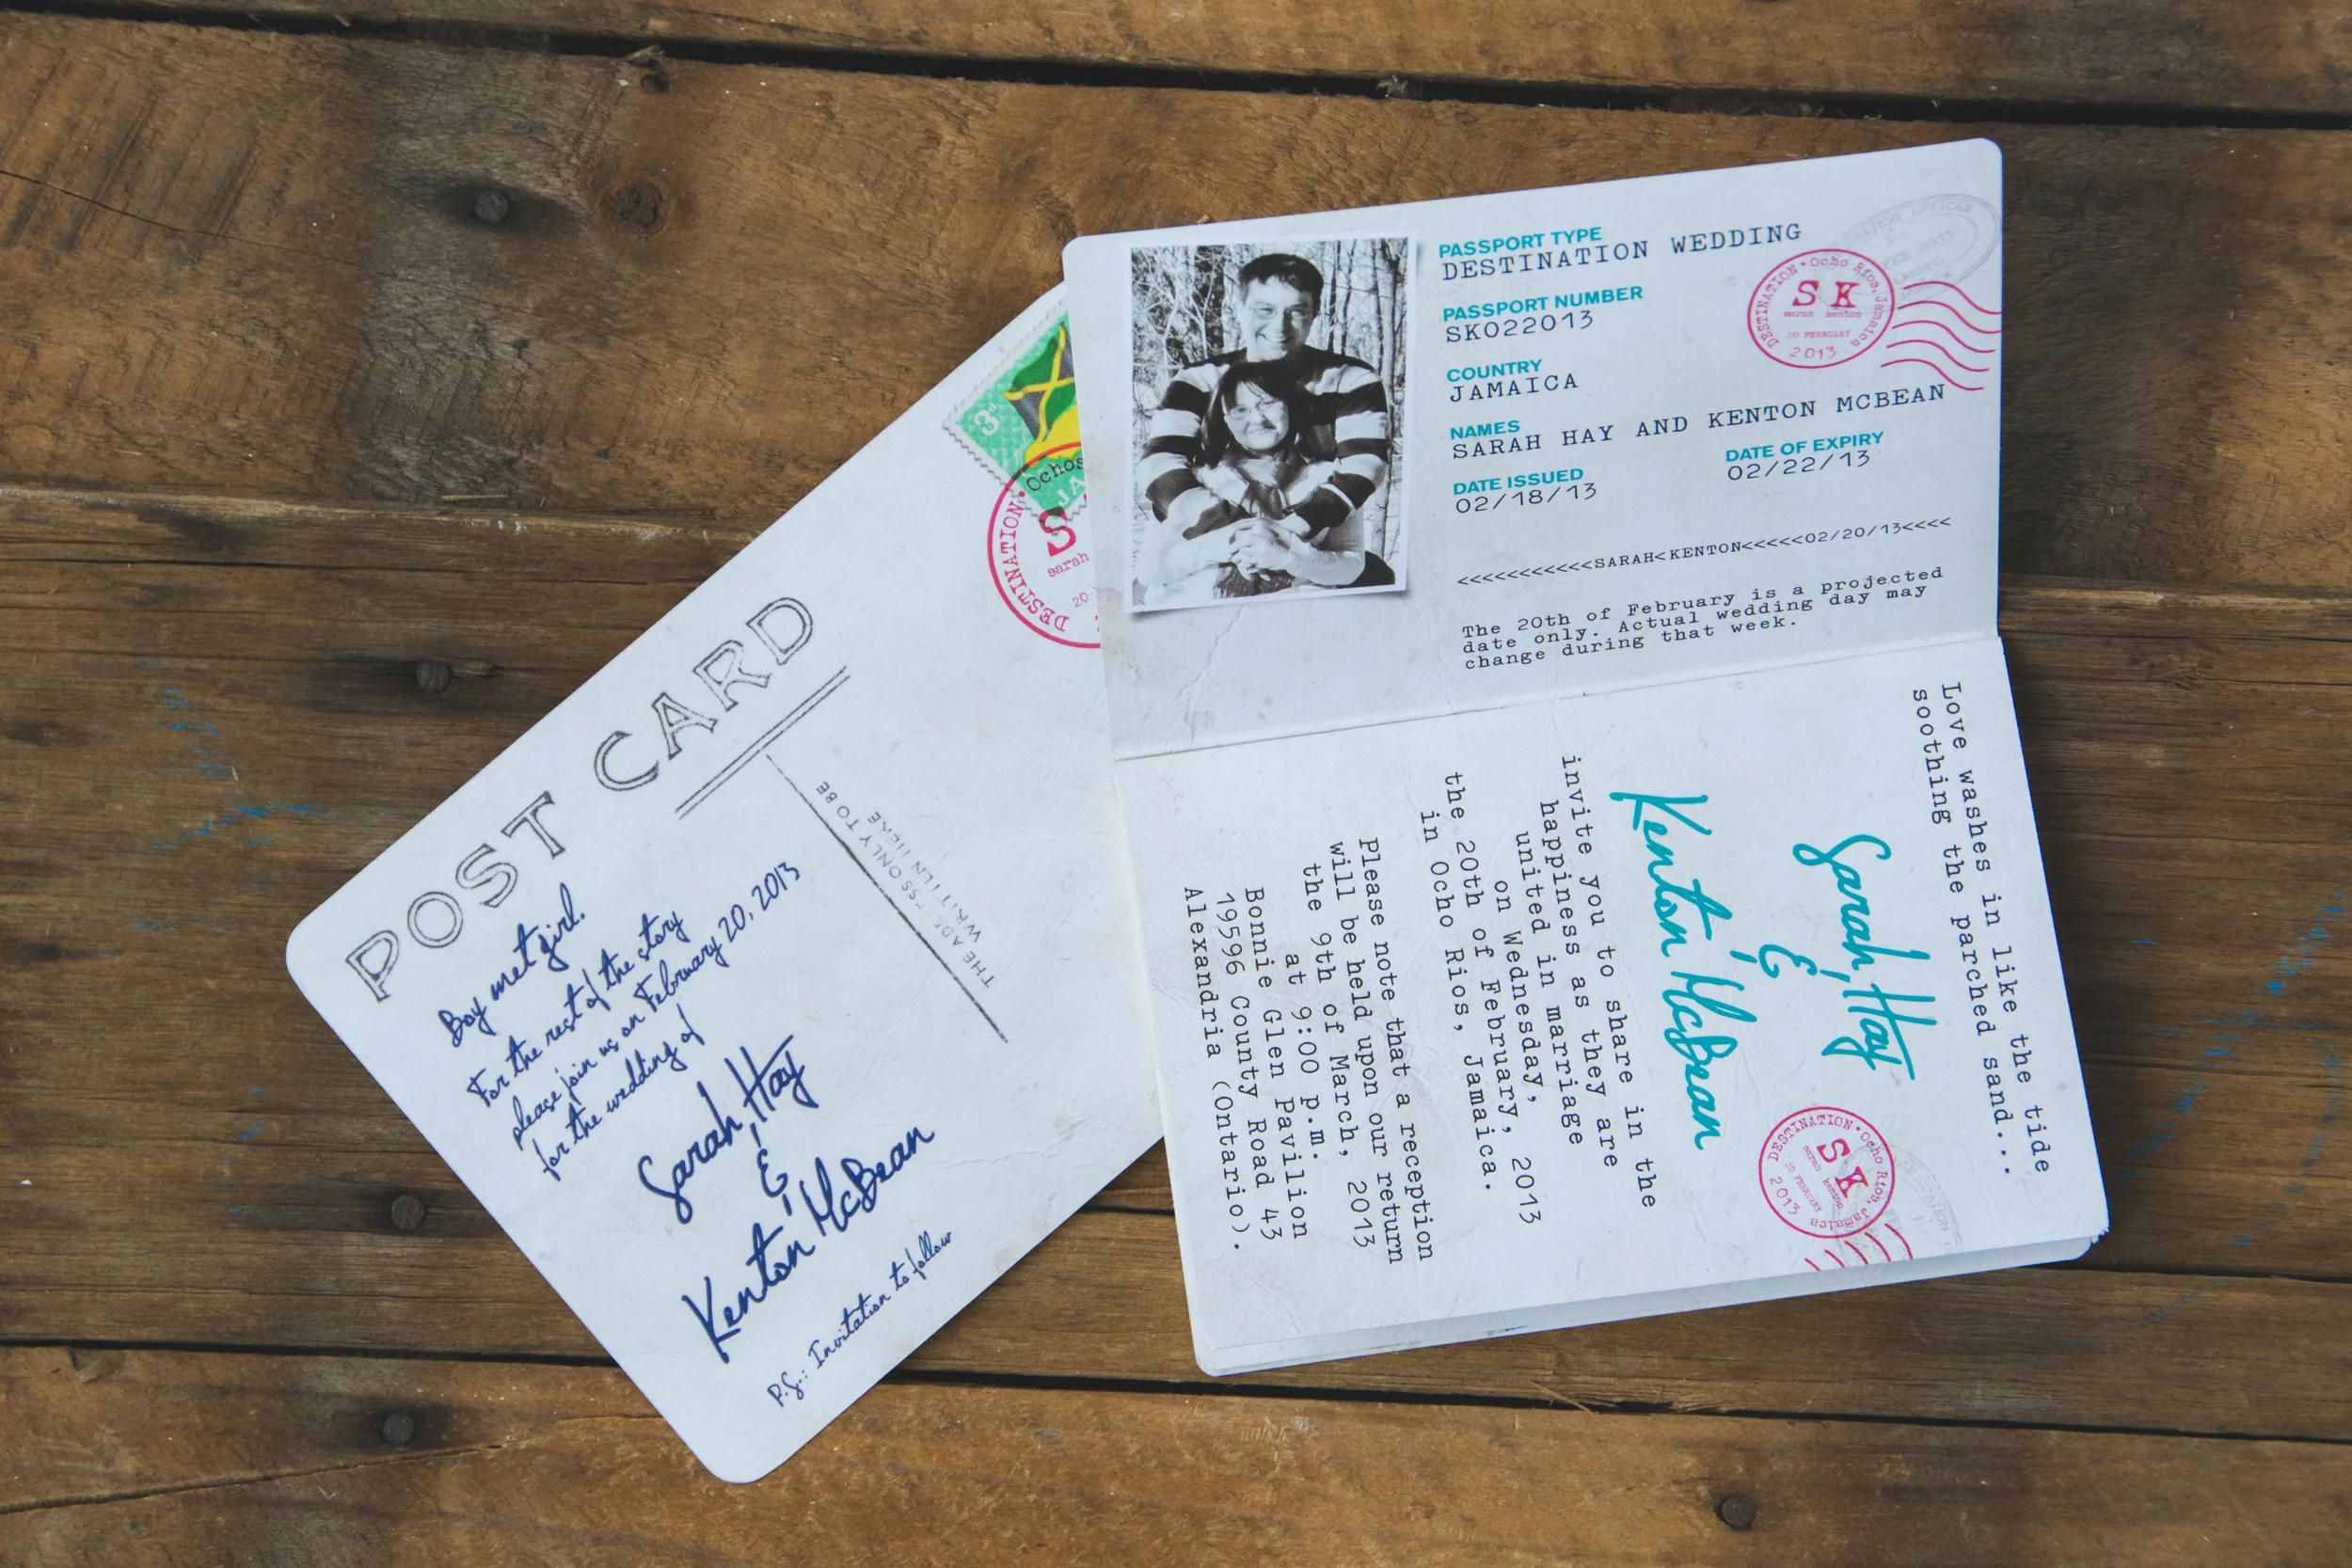 POST CARD
THE ADDRESS ONLY TO BE
WRITTEN HERE
Boy met girl.
For the rest of the story
please join us on February 20, 2013
for the wedding of
Sarah Hay
&
Kenton McBean
P.S.: Invitation to follow
3d
JA
DESTINATION • Ochos
S
sarah
20
PASSPORT TYPE
DESTINATION WEDDING
PASSPORT NUMBER
SK022013
COUNTRY
JAMAICA
NAMES
SARAH HAY AND KENTON MCBEAN
DATE ISSUED
02/18/13
DATE OF EXPIRY
02/22/13
DESTINATION • Ocho Rios, Jamaica
SK
sarah kenton
20 FEBRUARY
2013
<<<<<<<<<<<SARAH<KENTON<<<<<02/20/13<<<<
The 20th of February is a projected
date only. Actual wedding day may
change during that week.
Love washes in like the tide
soothing the parched sand...
Sarah Hay
&
Kenton McBean
invite you to share in the
happiness as they are
united in marriage
on Wednesday,
the 20th of February, 2013
in Ocho Rios, Jamaica.
Please note that a reception
will be held upon our return
the 9th of March, 2013
at 9:00 p.m.
Bonnie Glen Pavilion
19596 County Road 43
Alexandria (Ontario).
DESTINATION • Ocho Rios, Jamaica
SK
sarah kenton
20 FEBRUARY
2013